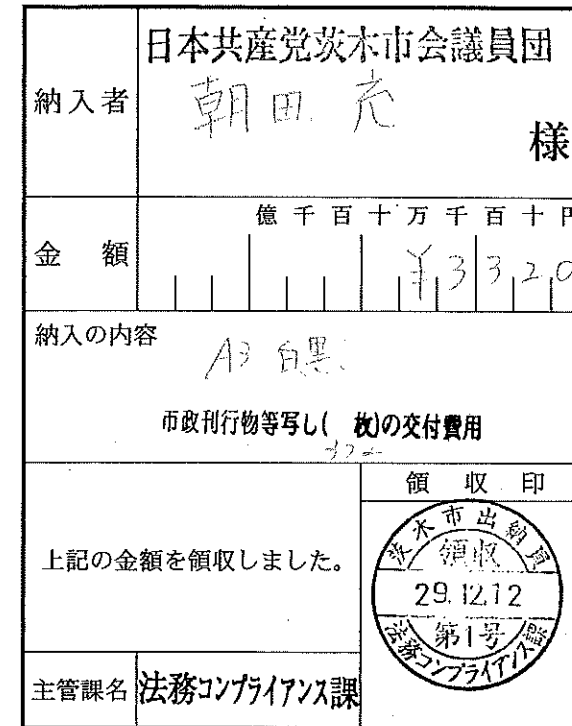 日本共産党茨木市会議員団
納入者
朝田 充
様
億千百十万千百十円
金額
¥3320
納入の内容
A3 白黒
市政刊行物等写し( 枚)の交付費用
領収印
上記の金額を領収しました。
茨木市出納員
領収
29.12.12
第1号
法務コンプライアンス課
主管課名 法務コンプライアンス課